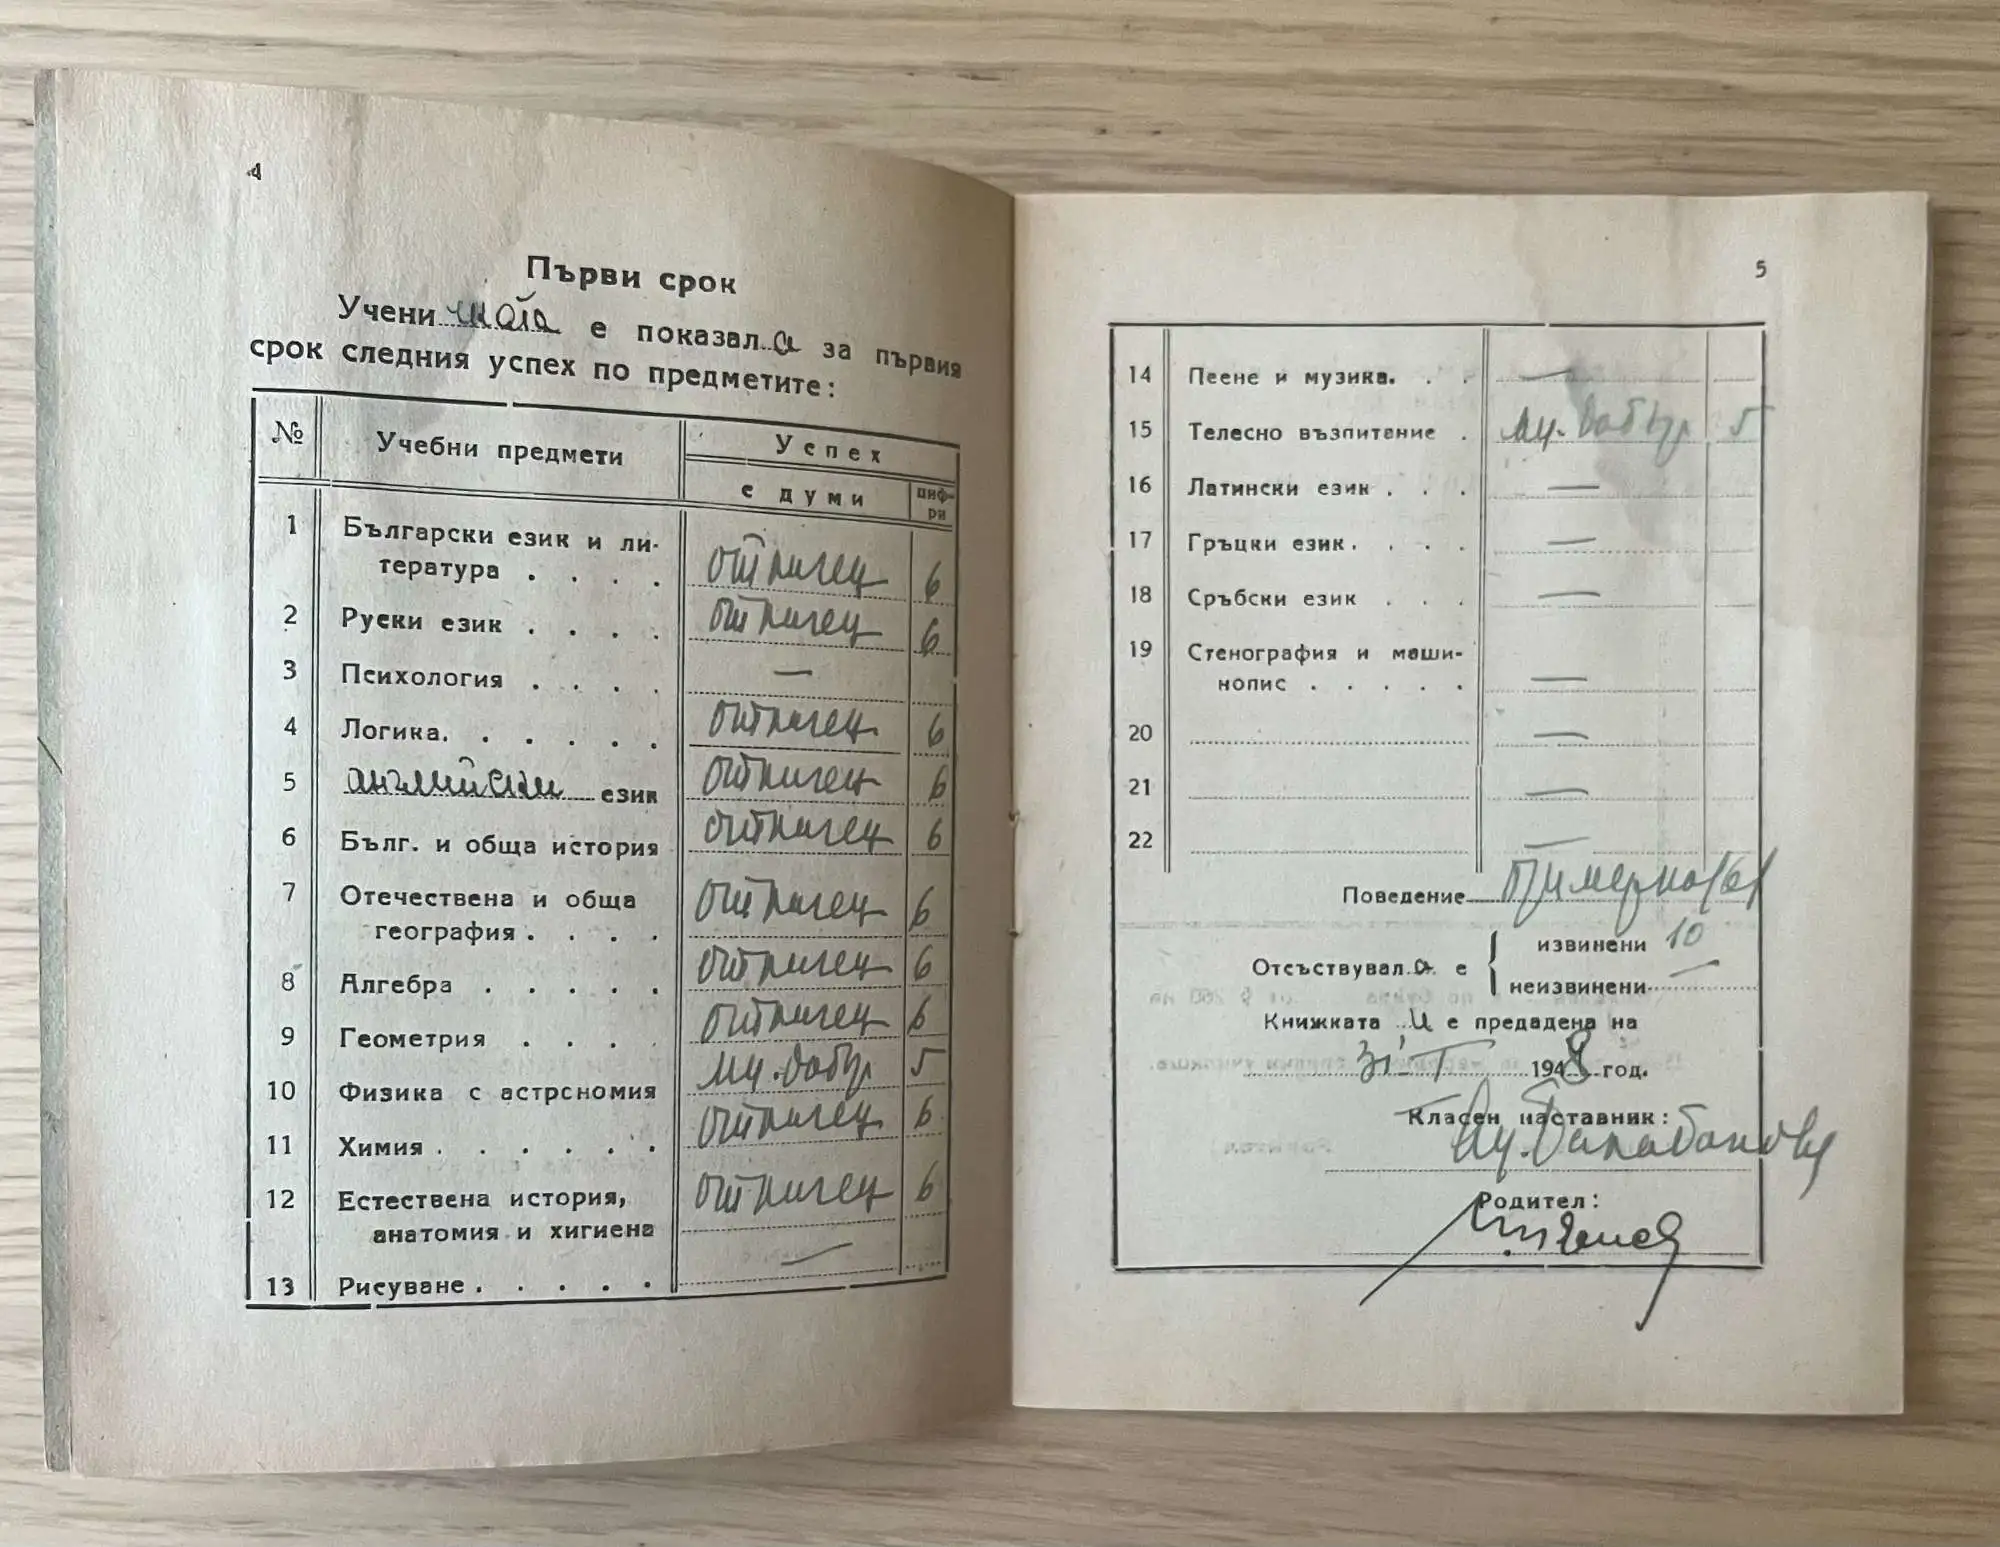 4
Първи срок
Ученичката е показала за първия
срок следния успех по предметите:
№ Учебни предмети Успех
с думи цифри
1 Български език и ли-
тература . . . . отличен 6
2 Руски език . . . . отличен 6
3 Психология . . . . —
4 Логика. . . . . . отличен 6
5 английски език отличен 6
6 Бълг. и обща история отличен 6
7 Отечествена и обща
география . . . . отличен 6
8 Алгебра . . . . . отличен 6
9 Геометрия . . . . отличен 6
10 Физика с астрономия мн. добър 5
11 Химия . . . . . . отличен 6
12 Естествена история,
анатомия и хигиена отличен 6
13 Рисуване . . . . . —
5
14 Пеене и музика. . . —
15 Телесно възпитение . мн. добър 5
16 Латински език . . . —
17 Гръцки език. . . . —
18 Сръбски език . . . —
19 Стенография и маши-
нопис . . . . . —
20 —
21 —
22 —
Поведение примерно (6)
Отсъствувала е { извинени 10
неизвинени —
Книжката ѝ е предадена на
31. I 1948 год.
Класен наставник:
Родител: